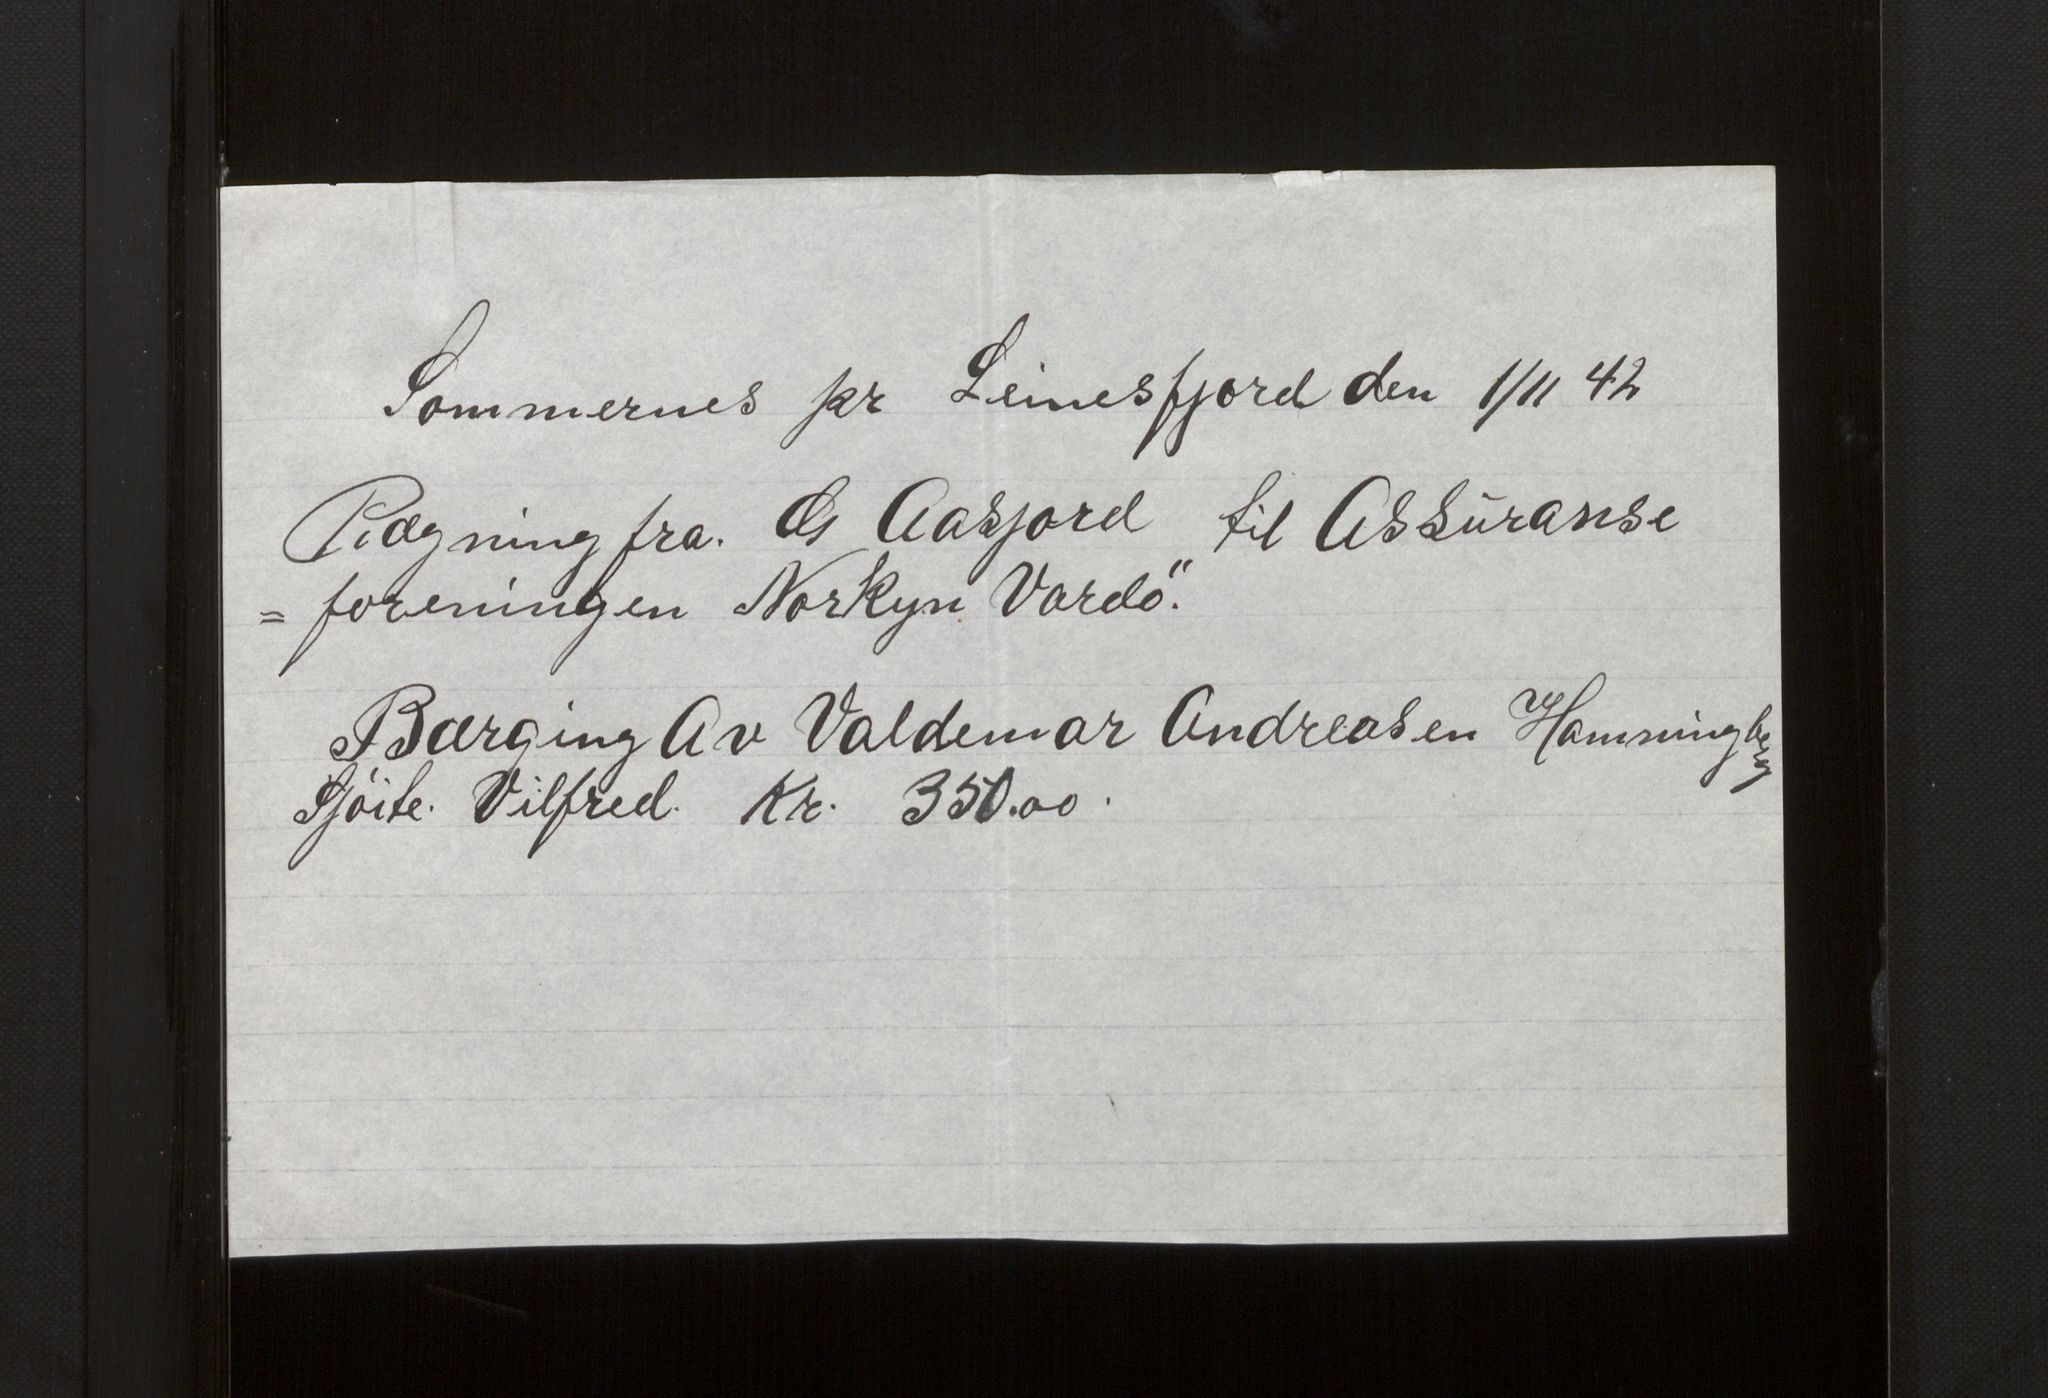 Sommernes pr Leinesfjord den 1/11 42
Rægning fra. Ds Aasjord til Assŭranse
= foreningen Norkyn Vardö".
Bærging Av Valdemar Andreasen Hamningberg
Sjöite. Vilfred. Kr. 350.00.